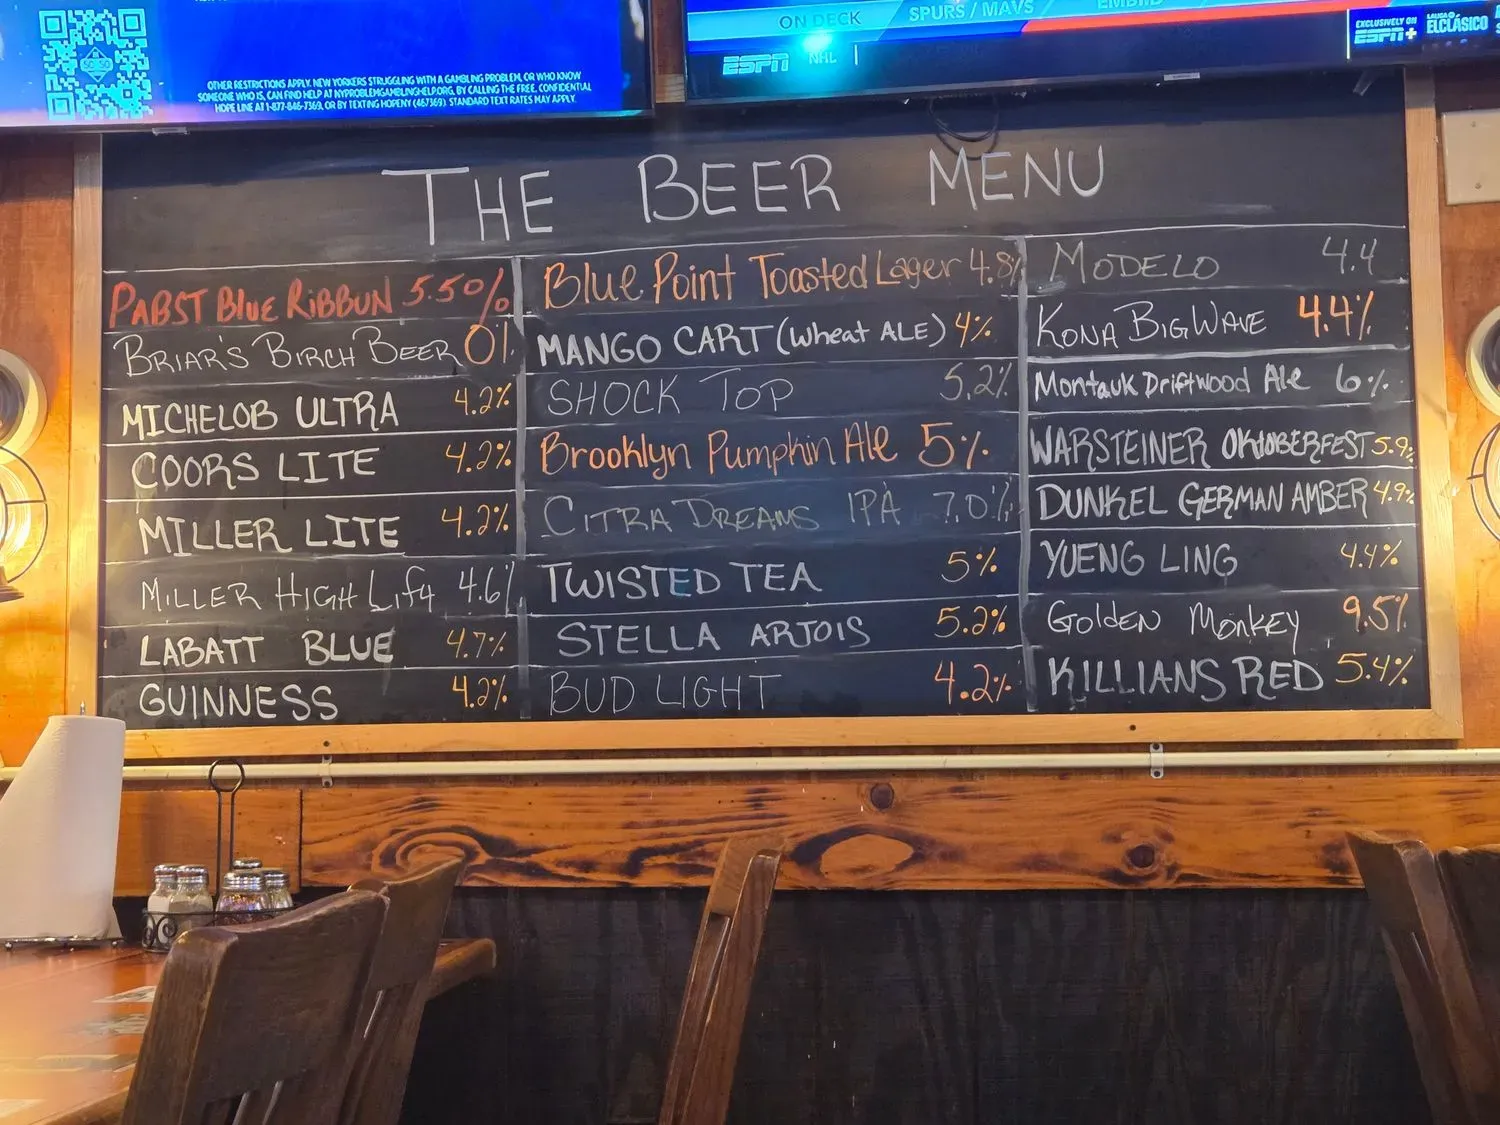 OTHER RESTRICTIONS APPLY. NEW YORKERS STRUGGLING WITH A GAMBLING PROBLEM, OR WHO KNOW
SOMEONE WHO IS, CAN FIND HELP AT NYPROBLEMGAMBLINGHELP.ORG, BY CALLING THE FREE, CONFIDENTIAL
HOPE LINE AT 1-877-846-7369, OR BY TEXTING HOPENY (467369). STANDARD TEXT RATES MAY APPLY.
ON DECK SPURS / MAVS EMBIID
ESPN NHL
EXCLUSIVELY ON
ESPN+
LALIGA
ELCLÁSICO
THE BEER MENU
PABST BLUE RIBBUN 5.50%
BRIAR'S BIRCH BEER 0%
MICHELOB ULTRA 4.2%
COORS LITE 4.2%
MILLER LITE 4.2%
MILLER HIGH Lify 4.6%
LABATT BLUE 4.7%
GUINNESS 4.2%
Blue Point Toasted Lager 4.8%
MANGO CART (Wheat ALE) 4%
SHOCK TOP 5.2%
Brooklyn Pumpkin Ale 5%
CITRA DREAMS IPA 7.0%
TWISTED TEA 5%
STELLA ARTOIS 5.2%
BUD LIGHT 4.2%
MODELO 4.4
KONA BIG WAVE 4.4%
Montauk Driftwood Ale 6%
WARSTEINER OKTOBERFEST 5.9%
DUNKEL GERMAN AMBER 4.9%
YUENG LING 4.4%
Golden Monkey 9.5%
KILLIANS RED 5.4%